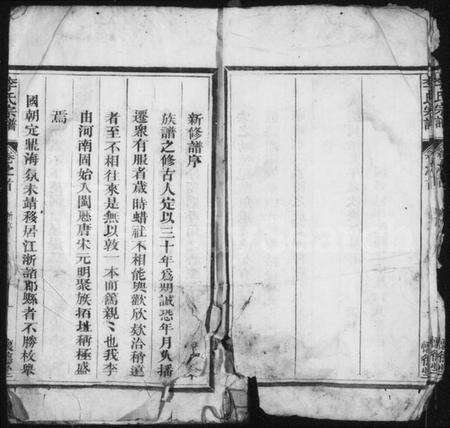 李氏宗譜
新修譜序
族譜之修古人定以三十年為期誠恐年月久播
遷衆有服者歲時蜡社不相能與歡欣欵洽稍遠
者至不相往來是無以敦一本而篤親〻也我李
由河南固始入閩歷唐宋元明聚族拓址稱極盛
焉
國朝定鼎海氛未靖移居江浙諸郡縣者不勝枚舉
李氏宗譜
卷之首